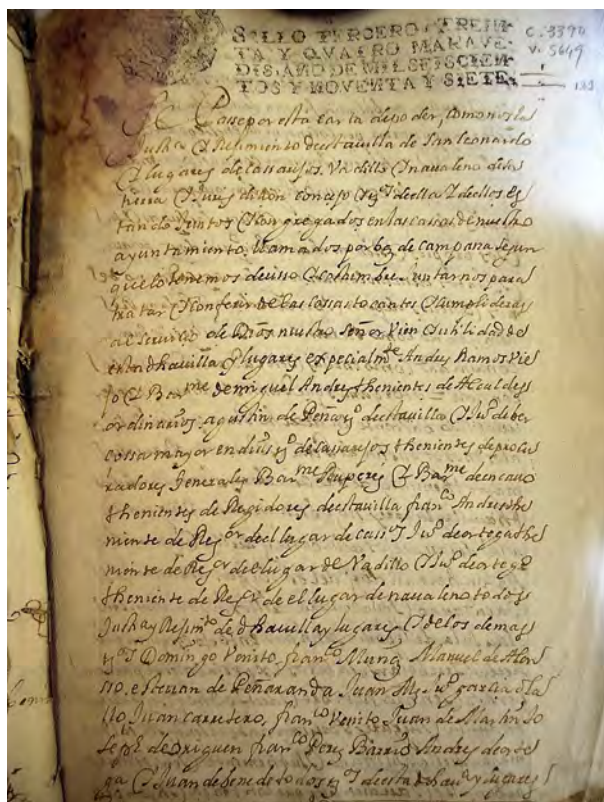 SELLO TERCERO, TREIN-
TA Y QVATRO MARAVE-
DIS, AÑO DE MIL SEISCIEN-
TOS Y NOVENTA Y SIETE.
C. 3394
v. 5649
Sepasse por esta carta de poder, como nos la
Justtª y Rejimiento de esta villa de San leonardo
y lugares de cassarejos, Vadillo y navaleno de su
tierra y Jurisdizion concejo y vºs de ella y de ellos es
tando Juntos y Congregados en las casas de nuestro
ayuntamiento, llamados por boz de campana segun
que lo tenemos de usso y costumbre juntarnos para
tratar y conferir de las cossas tocantes y Cumplideras
al servicio de Dios nuestro Señor Vien y utilidad de
esta dha villa y lugares expecialmte Andres Ramos vie
jo y Barme de miguel Andres thenientes de Alcaldes
ordinarios, agustin de Peña vº de esta villa y Juº de
cossa mayor en dias vº de cassarejos thenientes de procu
radores Jenerales Barme Ruperez y Barme de
thenientes de Regidores de esta villa franco Andres the
niente de Regor de el lugar de Juº de ortega the
niente de Regr de el lugar de Vadillo y Juº de ortega
theniente de Regr de el lugar de navaleno todos
Justª y Rejimto de dha villa y lugares y de los demas
vºs Domingo Venito, franco Muñoz Manuel de
esteuan de Peñaranda Juan Juº garcia
Juan carretero, franco Venito, Juan de Martin Jo
seph de franco Perez Barrio Andres de orte
ga y Juan de todos vºs de esta dha va y lugares